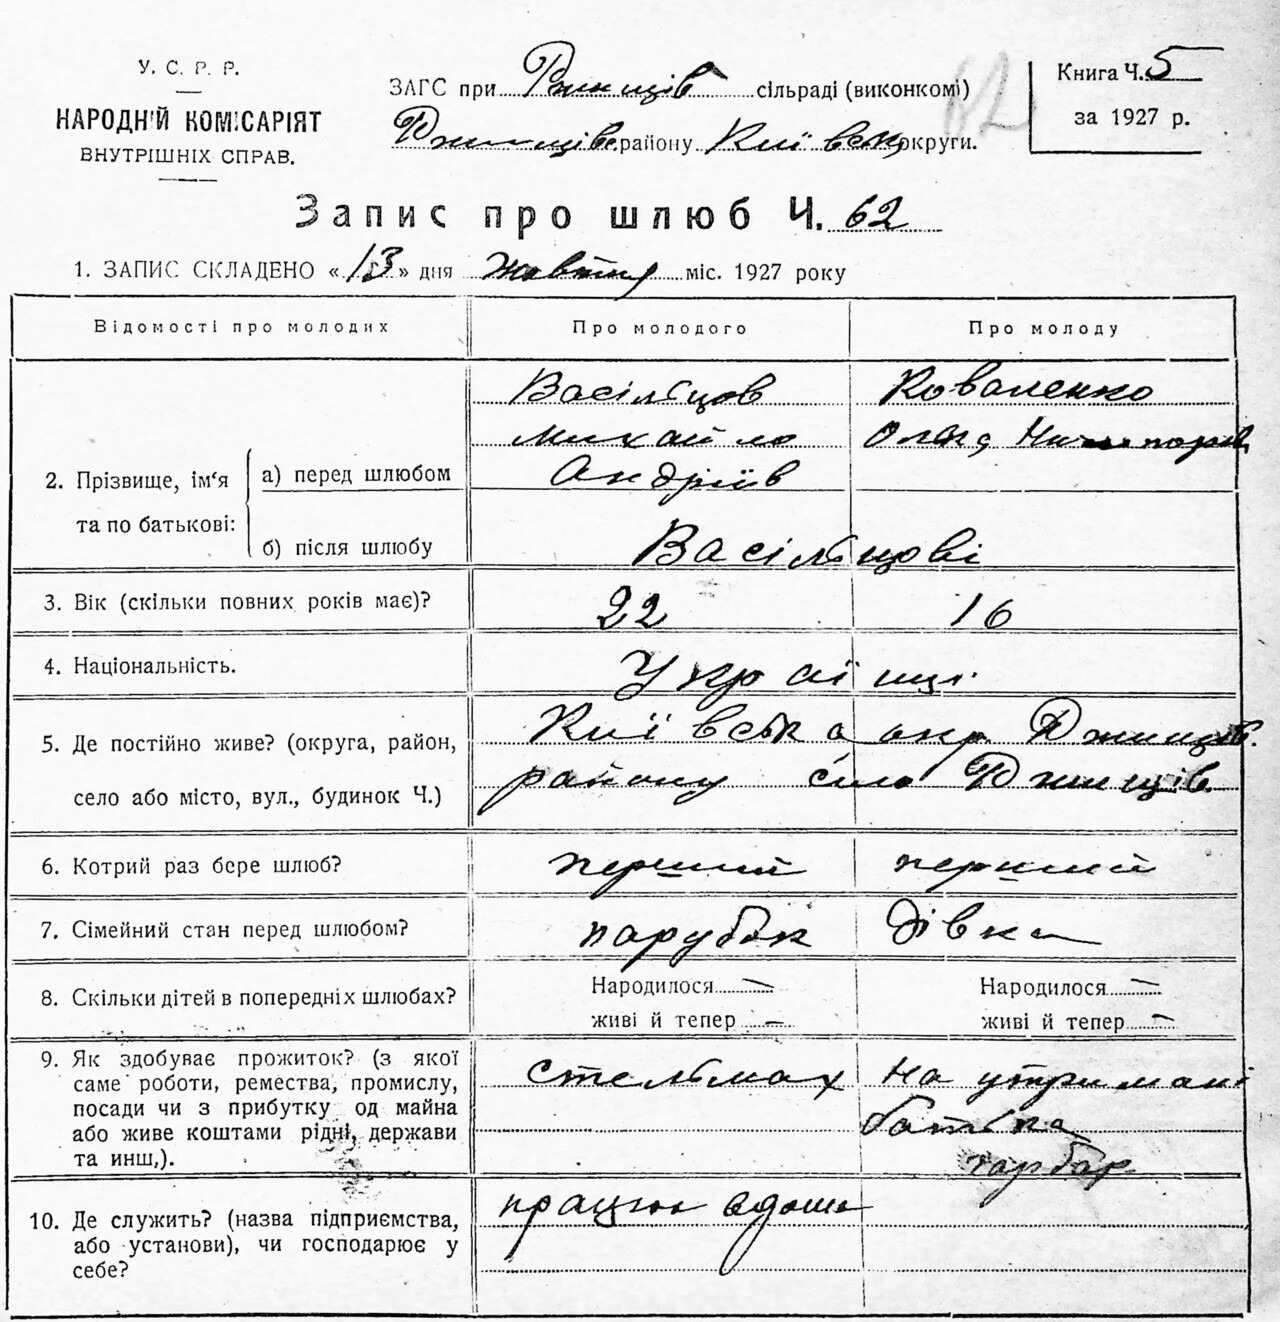 У. С. Р. Р.
НАРОДНІЙ КОМІСАРІЯТ
ВНУТРІШНІХ СПРАВ.
ЗАГС при Ржищів сільраді (виконкомі)
Ржищівс району Київськ округи.
62
Книга Ч. 5
за 1927 р.
Запис про шлюб Ч. 62
1. ЗАПИС СКЛАДЕНО «13» дня жовтня міс. 1927 року
Відомості про молодих Про молодого Про молоду
Васільцов Коваленко
Михайло Ольга
2. Прізвище, ім‘я а) перед шлюбом Андріїв
та по батькові: б) після шлюбу Васільцові
3. Вік (скільки повних років має)? 22 16
4. Національність. Українці
5. Де постійно живе? (округа, район, Київська окр. Ржищів.
село або місто, вул., будинок Ч.) району село Ржищів
6. Котрий раз бере шлюб? перший перший
7. Сімейний стан перед шлюбом? парубок дівка
8. Скільки дітей в попередніх шлюбах? Народилося — Народилося —
живі й тепер — живі й тепер —
9. Як здобуває прожиток? (з якої стельмах на утримані
саме роботи, ремества, промислу,
посади чи з прибутку од майна батька
або живе коштами рідні, держави
та инш,).
10. Де служить? (назва підприємства, працює вдома
або установи), чи господарює у
себе?